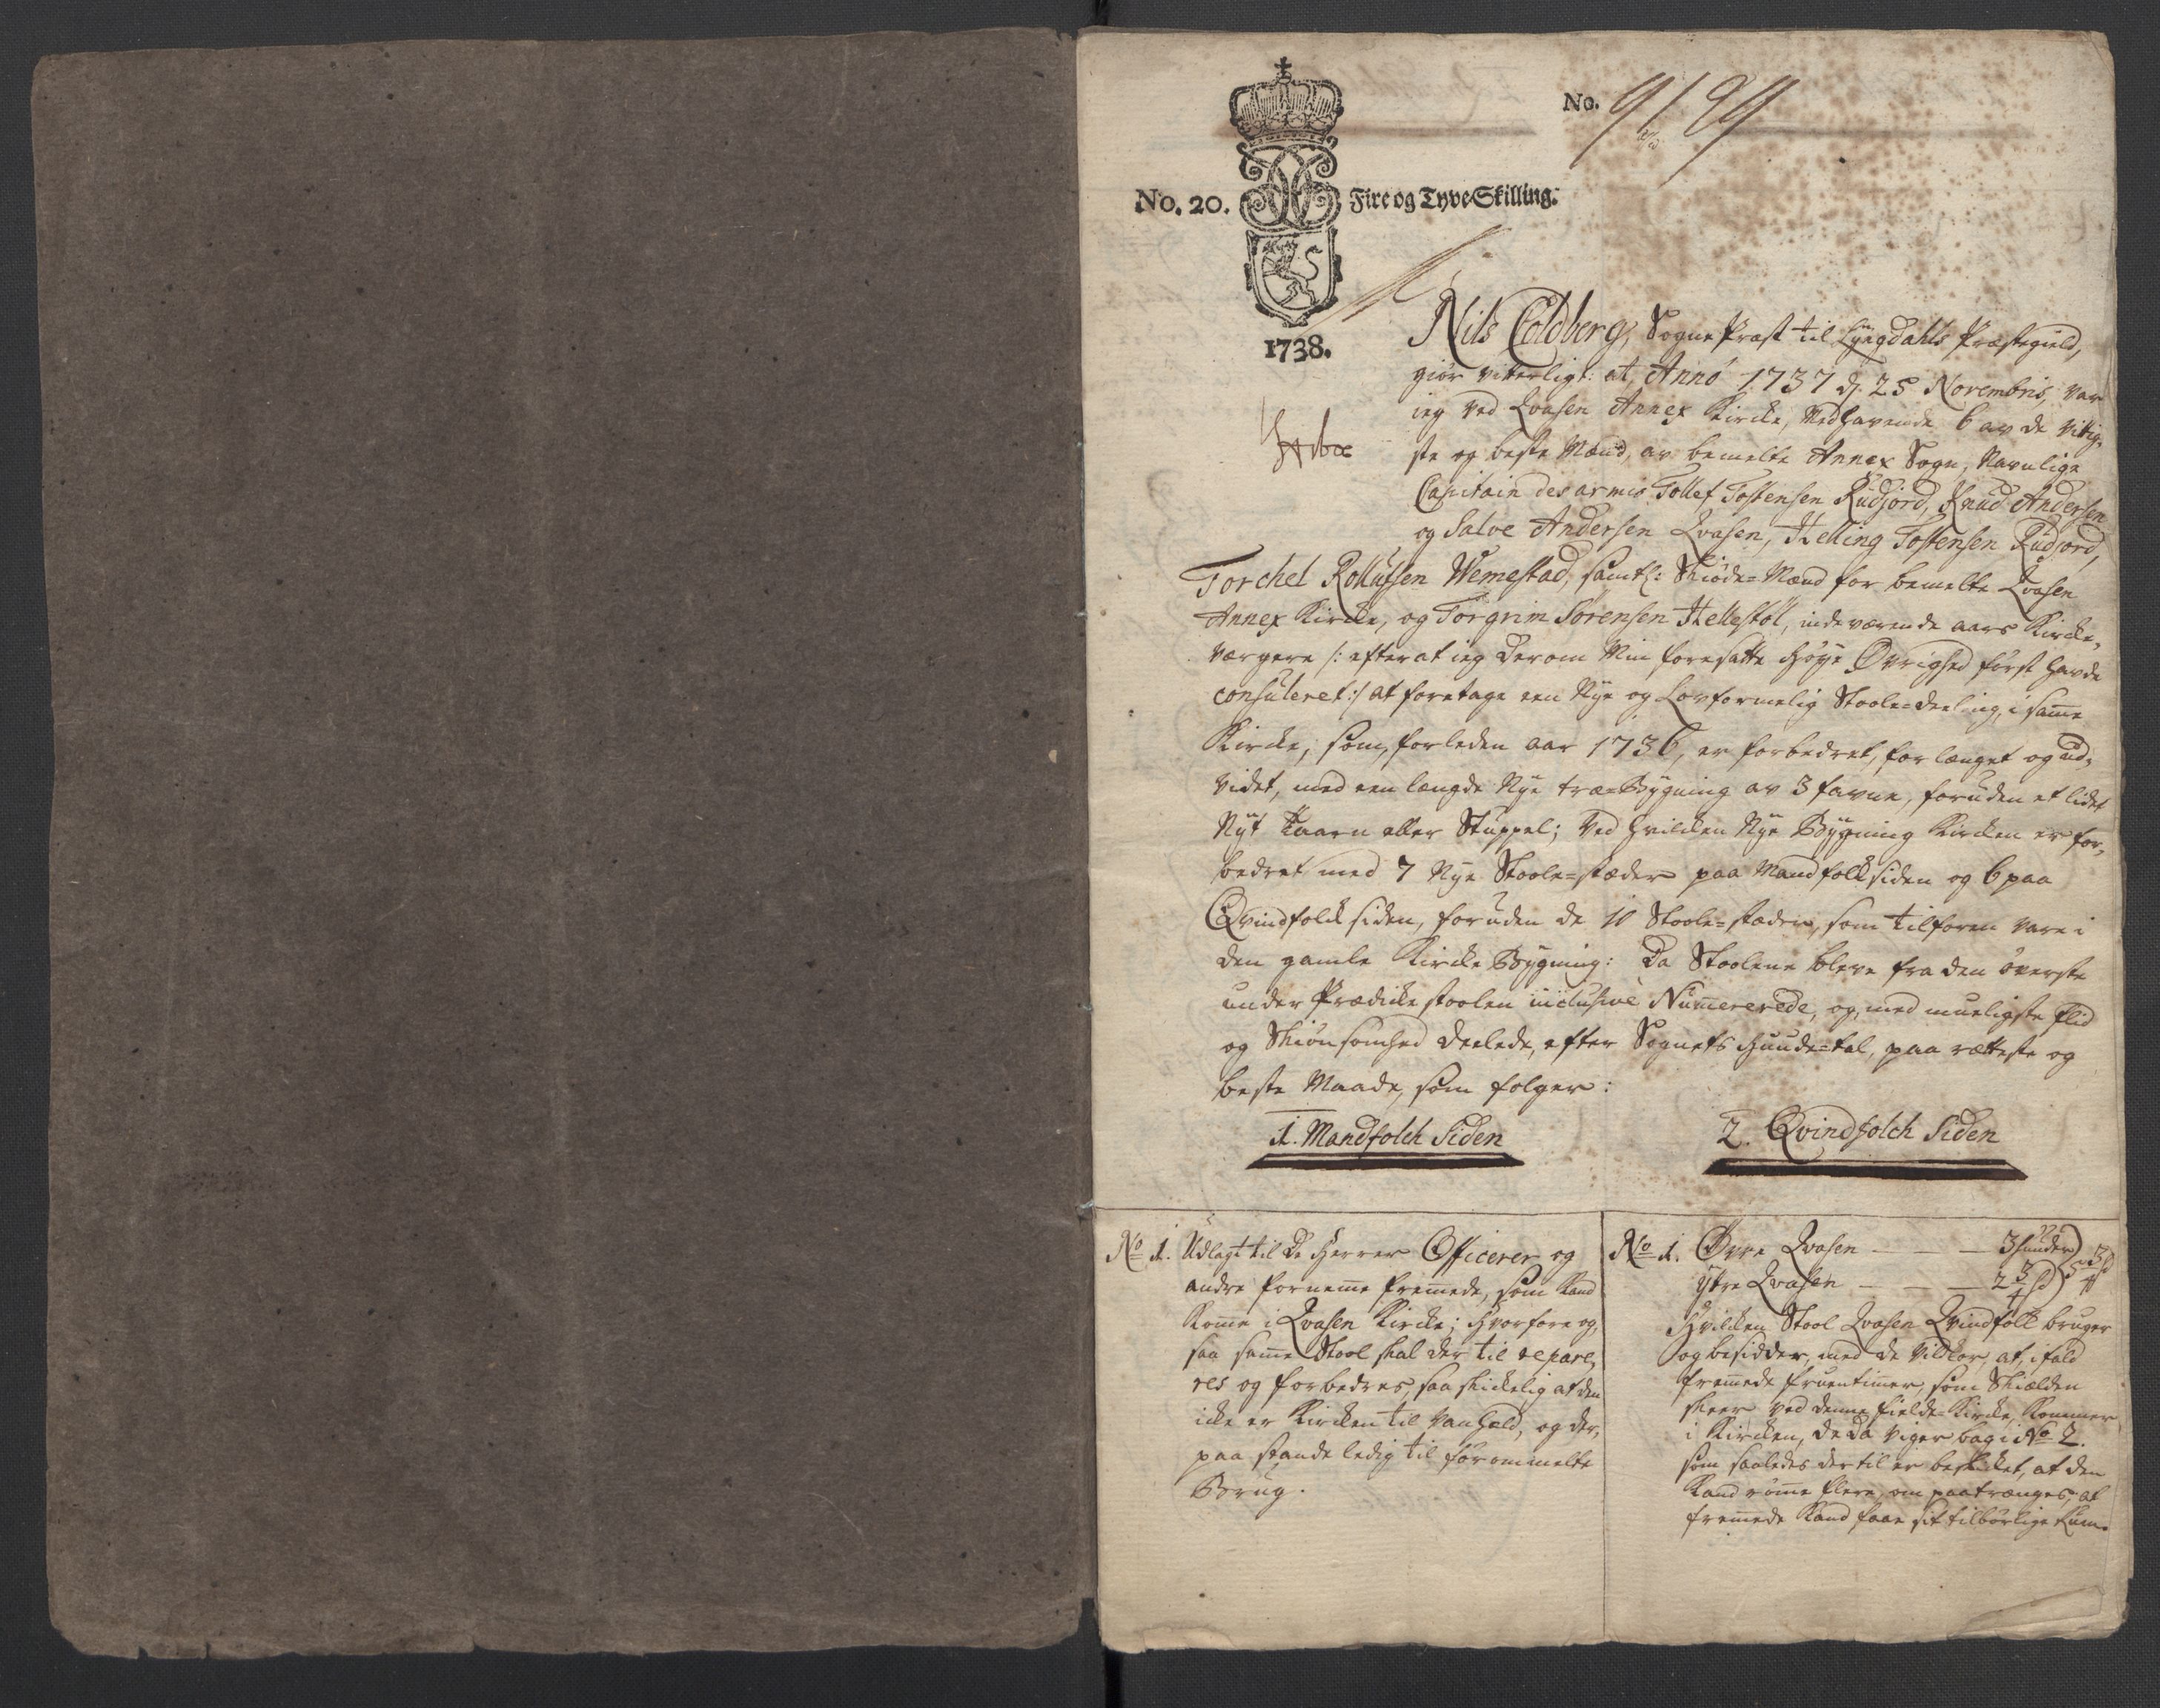 No. 9/89
No. 20. Fire og Tyve Skilling.
1738.
Nils Coldberg, Sogne Præst til Lyngdahls Præstegield,
giør vitterligt: at, Anno 1737 d. 25 Novembris, var
ieg ved Qvasen Annex Kirche, Medhavende 6 av de vittig-
ste og beste Mænd, av bemelte Annex Sogn, Navnlige
Capitain des armis Tollef Tostensen Rudjord, Knud Andersen
og Salve Andersen Qvasen, Helling Tostensen Rudjord,
Torchel Rollufsen Wemestad, samtl: Skiøde-Mænd for bemelte Qvasen
Annex Kirche, og Torgrim Sørensen Hellestøl, indeværende aars Kirche-
værgere /: efter at ieg derom Min foresatte Høye Øvrighed først havde
consuleret :/ at foretage een Nye og Lovformelig Stoole-deeling, i same
Kirche, som, forleden aar 1736, er forbedret, forlænget og ud-
videt, med een længde Nye træ-Bygning av 3 favne, foruden et lidet
Nyt Taarn eller Stuppel; Ved hvilcken Nye Bygning Kircken er for-
bedret med 7 Nye Stoole-stæder paa Mandfolk siden og 6 paa
Qvindfolck siden, foruden de 10 Stoole-stæder, som tilforen vare i
den gamle Kircke Bygning: Da Stoolene bleve fra den øverste
under Prædickestoolen inclusive Numererede, og, med mueligste flid
og Skiønsomhed deelede, efter Sognets Hunde-tal, paa rætteste og
beste Maade, som følger:
1. Mandfolch Siden
2. Qvindfolch Siden
No 1. Udlagt til de Herrer Officerer og
andre forneme fremede, som kand
kome i Qvasen Kircke; hvorfore og-
saa same Stool skal der til repare-
res og forbedres, saa skickelig at den
icke er Kircken til Vanheld, og der-
paa stande ledig til forommelte
Brug.
No 1. Øvre Qvasen — — 3 hunder
Ytre Qvasen — — 2 3/4 hd } 5 3/4 hd
Hvilcken Stool Qvasen Qvindfolk bruger
og besidder, med de Vilckor, at, ifald
fremede fruentimer, som Skiælden
skeer ved denne field-Kircke, kommer
i Kircken, de da viger bag i No 2.
som saaledes der til er beskicket, at den
kand røme flere, om paatrænges, at
fremede kand faae sit tilbørlige Rum.